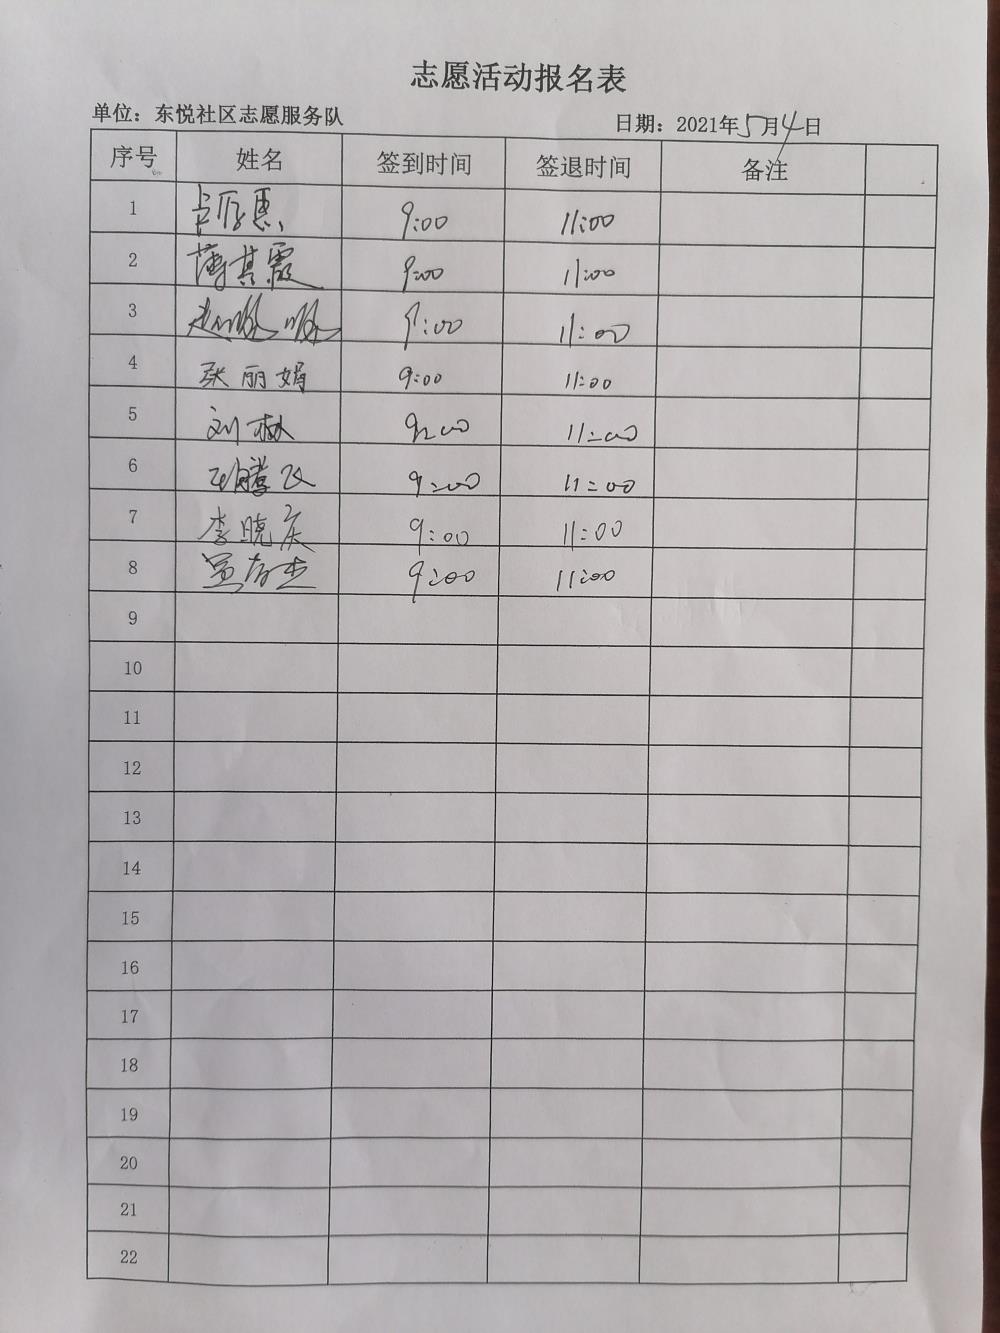 志愿活动报名表
单位：东悦社区志愿服务队 日期：2021年5月4日
序号 姓名 签到时间 签退时间 备注
1 9:00 11:00
2 薄其霞 9:00 11:00
3 9:00 11:00
4 张丽娟 9:00 11:00
5 刘 9:00 11:00
6 腾飞 9:00 11:00
7 李晓庆 9:00 11:00
8 9:00 11:00
9
10
11
12
13
14
15
16
17
18
19
20
21
22